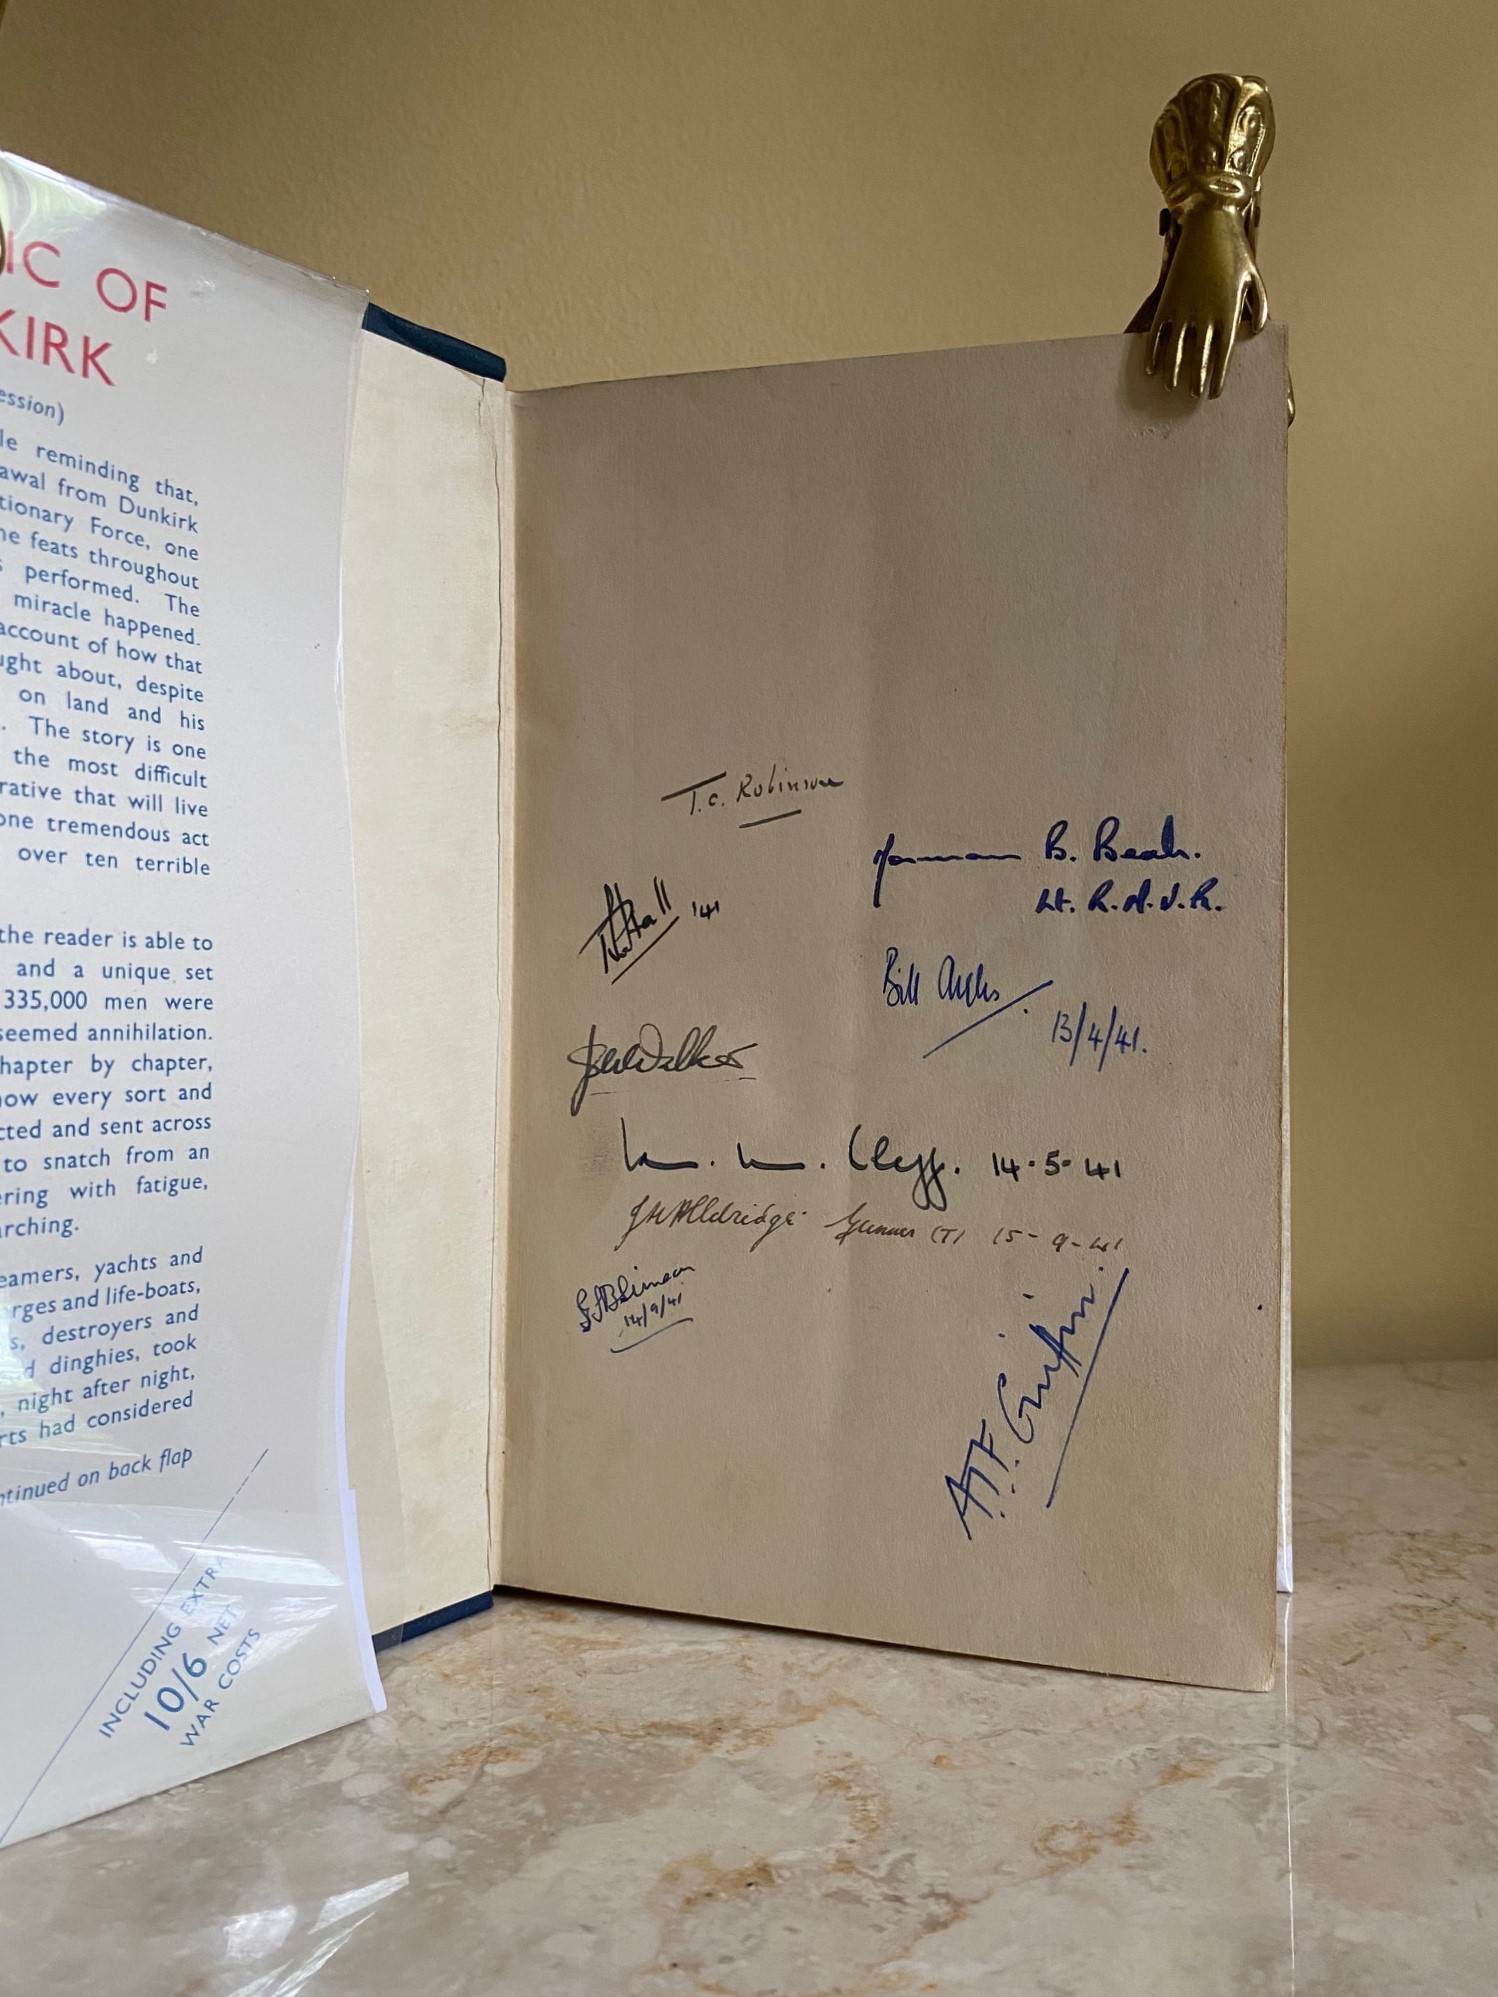 IC OF
KIRK
ession)
le reminding that,
awal from Dunkirk
tionary Force, one
ne feats throughout
s performed. The
miracle happened.
account of how that
ught about, despite
on land and his
. The story is one
the most difficult
rative that will live
one tremendous act
over ten terrible
the reader is able to
and a unique set
335,000 men were
seemed annihilation.
hapter by chapter,
now every sort and
cted and sent across
to snatch from an
ering with fatigue,
arching.
eamers, yachts and
arges and life-boats,
s, destroyers and
d dinghies, took
, night after night,
rts had considered
ntinued on back flap
INCLUDING EXTRA
10/6 NET
WAR COSTS
T.C. Robinson
Norman B.
Lt. R.N.V.R.
'41
Bill
13/4/41.
Walker
Clegg. 14-5-41
Aldridge Gunner (T) 15-9-41
14/9/41
A.F. Griffin.